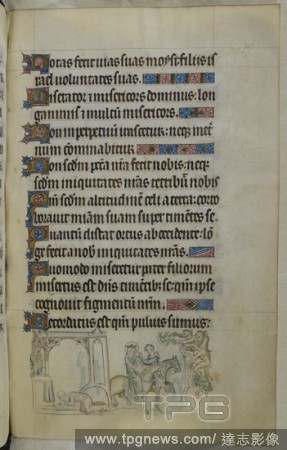 Notas fecit vias suas moysi: filiis is
rael voluntates suas.
Miserator ⁊ misericors dominus: lon
gaminis ⁊ multum misericors.
Non in perpetuum irascetur: neqꝫ in et
num comminabitur.
Non scdm pccā nra fecit nobis: neqꝫ
scdm iniquitates nras retribuit nobis
scdm altitudinē celi a terra: corro
boravit miam suam super timētes se.
Quantū distat ortus ab occidente: lon
ge fecit a nob iniquitates nras.
Quomodo miseretur pater filiorum
misertus est dns timētibꝫ se: qm ipse
cognovit figmentum nrm.
Recordatus est qm pulvis sumus:
TPG
www.tpgnews.com/ 達志影像